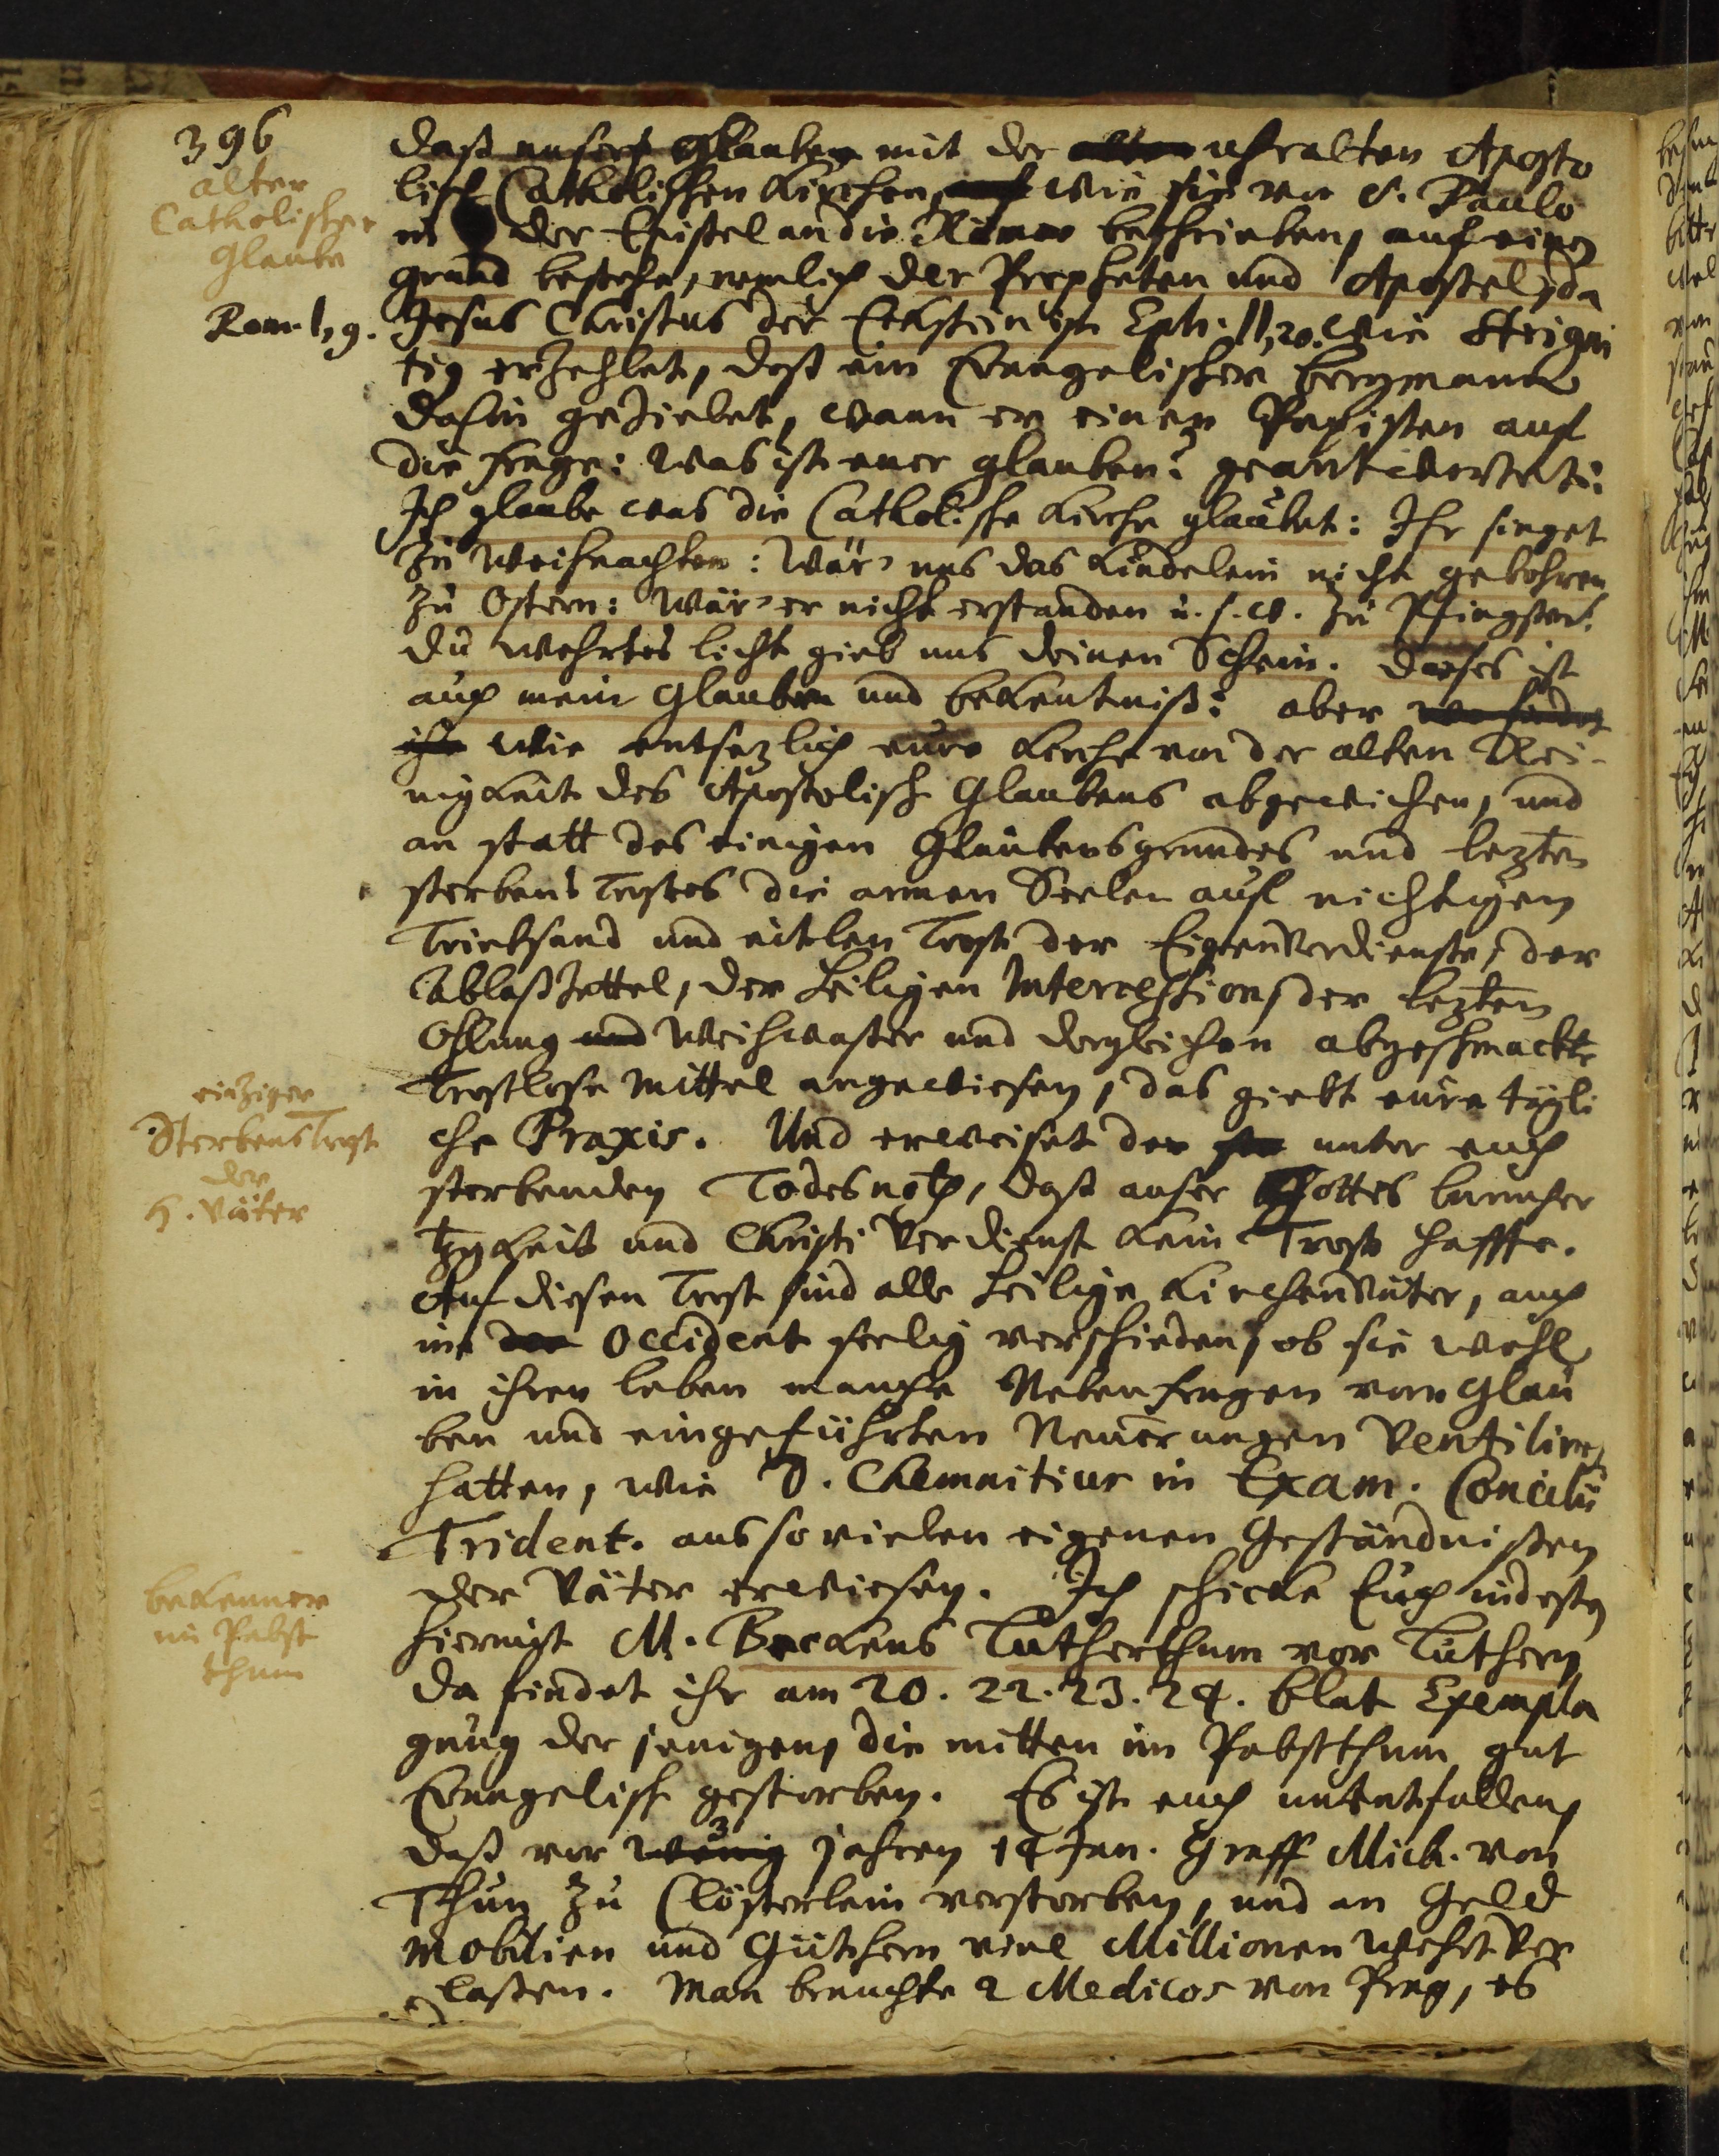 396
alter
Catholischer
Glaube
Rom. 1, 9.
daß unsere Glauben mit der alten uhralten Aposto
lisch Catholischen Kirchen, auch wie sie von S. Paulo
in der Epistel an die Römer beschrieben, auf einen
grund bestehe, nemlich der Propheten und Apostel, da
Jesus Christus der Eckstein ist Eph. II, 20. Wie Steigri
tig erzehlet, daß ein Evangelischer Bergmann
dahin geziehlet, wann er einen Papisten auf
die frage: Was ist euer glauben? geantwortet:
Ich glaube was die Catholische Kirche glaubet: Ihr singet
zu Weihnachten: Wär uns das Kindelein nicht gebohren
zu Ostern: Wär er nicht erstanden u. s. w. zu Pfingsten:
Du wehrtes licht gieb uns deinen Schein. Dieses ist
auch mein Glauben und bekentniß: aber
ihr wie entsezlich eure Kirche von der alten Rei-
nigkeit des Apostolisch Glaubens abgewichen, und
an statt des einigen Glaubensgrundes und lezten
sterbens Trostes die armen Seelen auf nichtigen
Triebsand und eitelen Trost der Eigenverdienste, der
Ablaßzettel, der heiligen Intercession, der lezten
Ohlung und Weihwasser und dergleichen abgeschmackte
Trostlose Mittel angewiesen, das giebt eure tägli
che Praxis. Und erweiset der unter euch
sterbenden Todesnoth, daß auser Gottes barmher
tzigkeit und Christi Verdienst kein Trost haffte.
Auf diesen Trost sind alle heilige Kirchenväter, auch
im der Occident seelig verschieden, ob sie wohl
in ihren leben manche Nebenfragen vom Glau
ben und eingeführten Neuerungen Ventiliret
hatten, wie D. Chemnitius in Exam. Concilii
Trident. aus so vielen eigenen Geständnissen
der Väter erwiesen. Ich schicke Euch indessen
hiermit M. Beckens Lutherthum vor Luthern
da findet ihr am 20. 22. 23. 24. blat Exempla
gnug der jenigen, die mitten im Pabstthum gut
Evangelisch gestorben. Es ist euch unentfallen,
daß vor wenig 3 jahren 14 Jan. Graff Mich. von
Thun zu Clösterlein verstorben, und an Geld
Mobilien und Güthern viel Millionen wehrt ver
lassen. Man brauchte 2 Medicos von Prag, es
einziger
Sterbens Trost
der
H. Väter
bekenner
im Pabst
thum